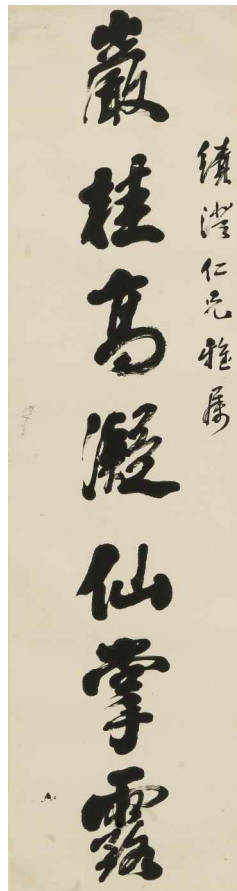 缜澄仁兄雅属
巖桂高凝仙掌露